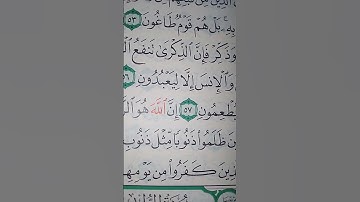 مِن قَبْلِهِم
بِهِۦۚ بَلۡ هُمۡ قَوۡمٌ طَاغُونَ ٥٣
وَذَكِّرۡ فَإِنَّ ٱلذِّكۡرَىٰ تَنفَعُ
وَٱلۡإِنسَ إِلَّا لِيَعۡبُدُونِ ٥٦
يُطۡعِمُونِ ٥٧ إِنَّ ٱللَّهَ هُوَ
ظَلَمُواْ ذَنُوبٗا مِّثۡلَ ذَنُوبِ
كَفَرُواْ مِن يَوۡمِهِ